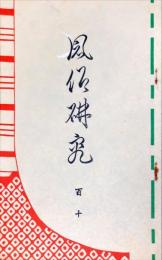 風俗研究
百十